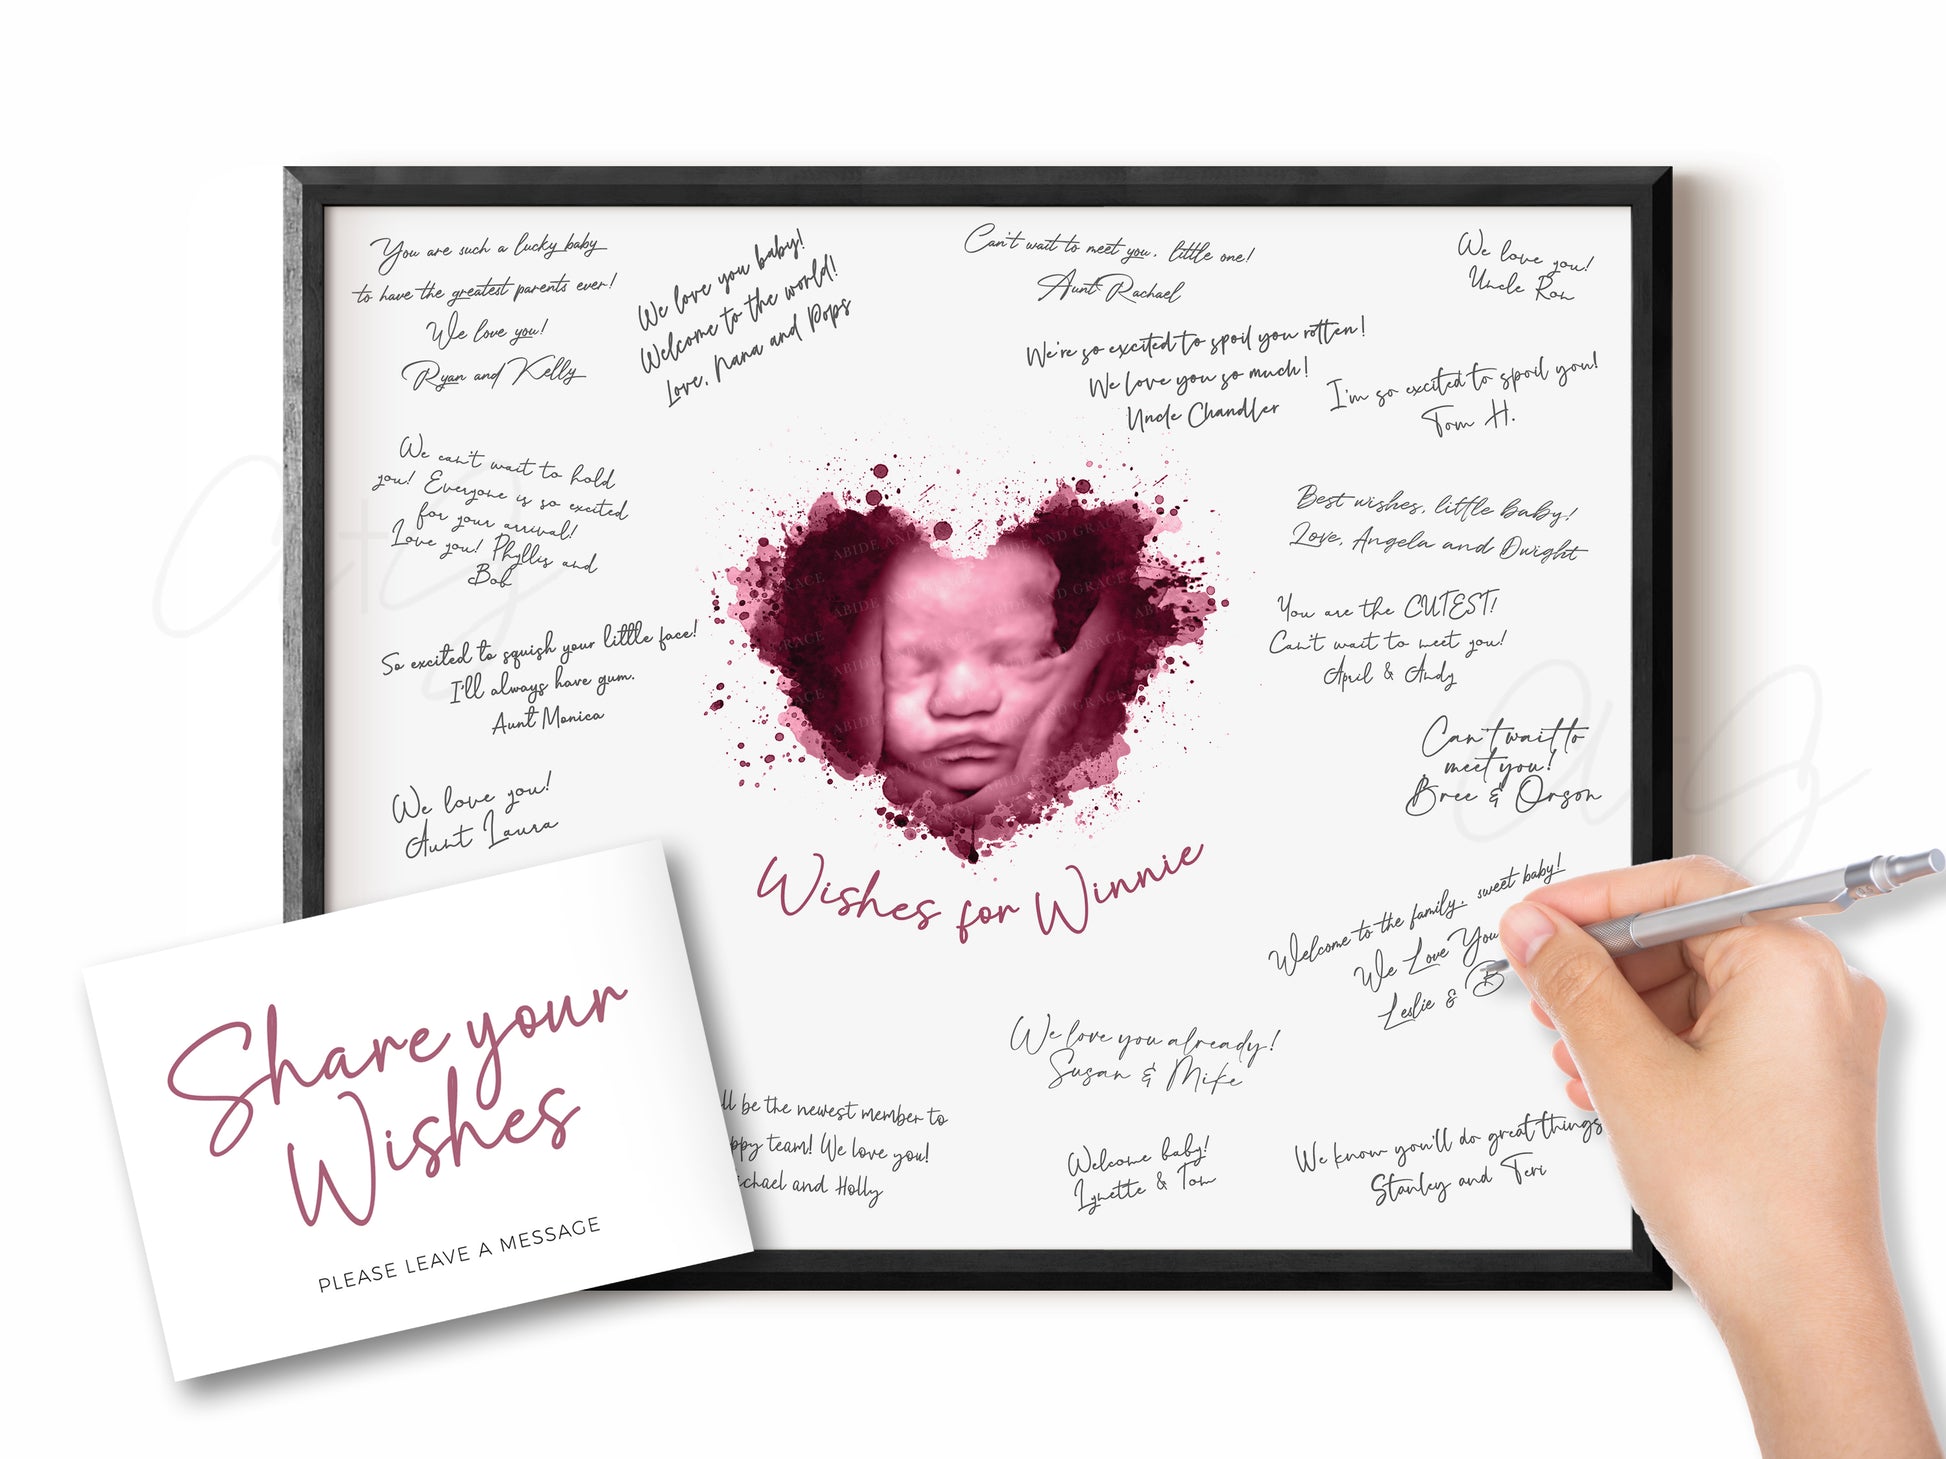 You are such a lucky baby
to have the greatest parents ever!
We love you!
Ryan and Kelly
We love you baby!
Welcome to the world!
Love, Nana and Pops
Can't wait to meet you, little one!
Aunt Rachael
We love you!
Uncle Ron
We're so excited to spoil you rotten!
We love you so much!
Uncle Chandler
I'm so excited to spoil you!
Tom H.
We can't wait to hold
you! Everyone is so excited
for your arrival!
Love you! Phyllis and
Bob
Best wishes, little baby!
Love, Angela and Dwight
You are the CUTEST!
Can't wait to meet you!
April & Andy
So excited to squish your little face!
I'll always have gum.
Aunt Monica
Can't wait to
meet you!
Bree & Orson
We love you!
Aunt Laura
ABIDE AND GRACE
Wishes for Winnie
Welcome to the family, sweet baby!
We Love You
Leslie & B
We love you already!
Susan & Mike
ll be the newest member to
ppy team! We love you!
ichael and Holly
Welcome baby!
Lynette & Tom
We know you'll do great things
Stanley and Teri
Share your
Wishes
PLEASE LEAVE A MESSAGE
AtG
AtG